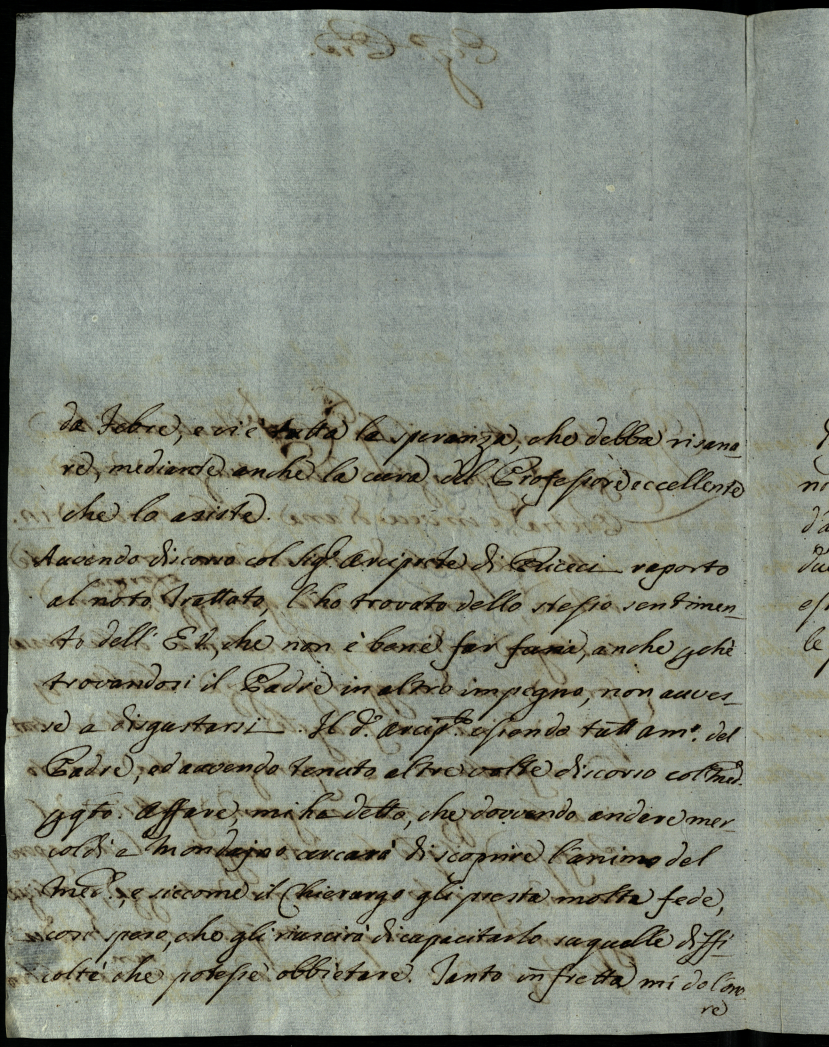 da febre, e vi è tutta la speranza, che debba risana-
re, mediante anche la cura del Professore eccellente
che lo assiste.
Avendo discorso col Sig.r Arciprete di raporto
al noto Trattato, l'ho trovato dello stesso sentimen-
to dell' E.V., che non è bene far fare, anche pchè
trovandosi il Padre in altro impegno, non aves-
se a disgustarsi. Il d.o Arcip.te essendo tutt' am.o del
Padre, ed avendo tenuto altre volte discorso col med.o
p q.to Affare, mi ha detto, che dovendo andare mer-
coldì a Mondajno cercarà di scoprire l'animo del
Med.o, e siccome il Chierargo gli presta molta fede,
così spero, che gli riuscirà di capacitarlo su quelle diffi-
coltà che potesse obbietare. Tanto in fretta mi do l'ono-
re